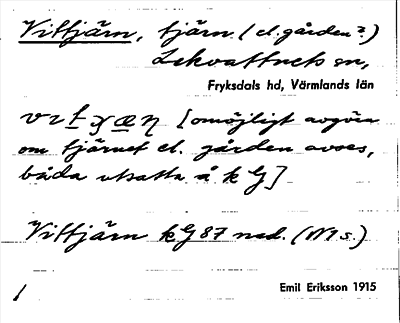 Vittjärn, tjärn. (el. gården?)
Lekvattnets sn,
Fryksdals hd, Värmlands län
[omöjligt avgöra
om tjärnet el. gården avses,
båda utsatta å k G]
Vittjärn k G 87 ned. (N1 s.)
Emil Eriksson 1915